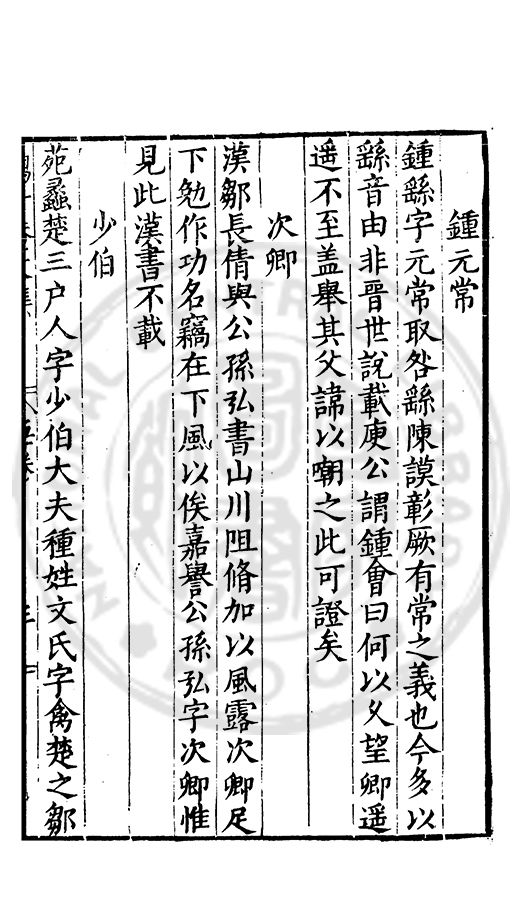 鍾元常
鍾繇字元常取咎繇陳謨彰厥有常之義也今多以
繇音由非晉世說載庾公謂鍾會曰何以久望卿遥
遥不至盖舉其父諱以嘲之此可證矣
次卿
漢鄒長倩與公孫弘書山川阻脩加以風露次卿足
下勉作功名竊在下風以俟嘉譽公孫弘字次卿惟
見此漢書不載
少伯
范蠡楚三户人字少伯大夫種姓文氏字禽楚之鄒